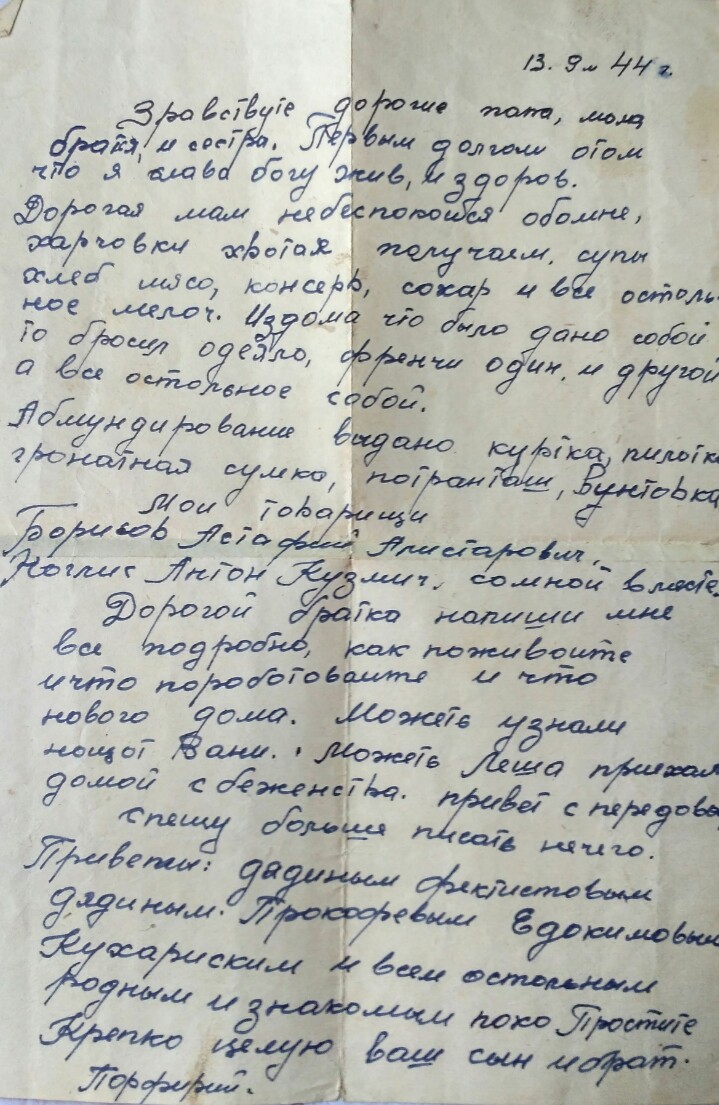 13. 9м 44 г.
Зравствуйте дорогие папа, мама
братя, и сестра. Первым долгом отом
что я слава богу жив, и здоров.
Дорогая мам небеспокойся обомне,
харчовки хвотая получаем, супы
хлеб мясо, консервы, сохар и все осталь-
ное мелоч. Издома что было дано собой
то бросил одеяло, френчи один, и другой
а все остольное собой.
Абмундирование выдано куртка, пилотка
гронатная сумка, потронташ, Вунтовка
Мои товарищи
Борисов Астафий Алистарович,
Антон Кузмич, сомной вместе.
Дорогой братка напиши мне
все подробно, как поживоите
ичто пороботоваите и что
нового дома. Можеть узнали
нощот Вани. Можеть Леша приехал
домой с беженства. привет с передовы
спешу больше писать нечего.
Приветы: дядиным фектистовым
дядиным. Прокофевым Едокимовым
Кухариским и всем остольным
родным и знакомым поко Простите
Крепко целую ваш сын ибрат.
Порфирий.